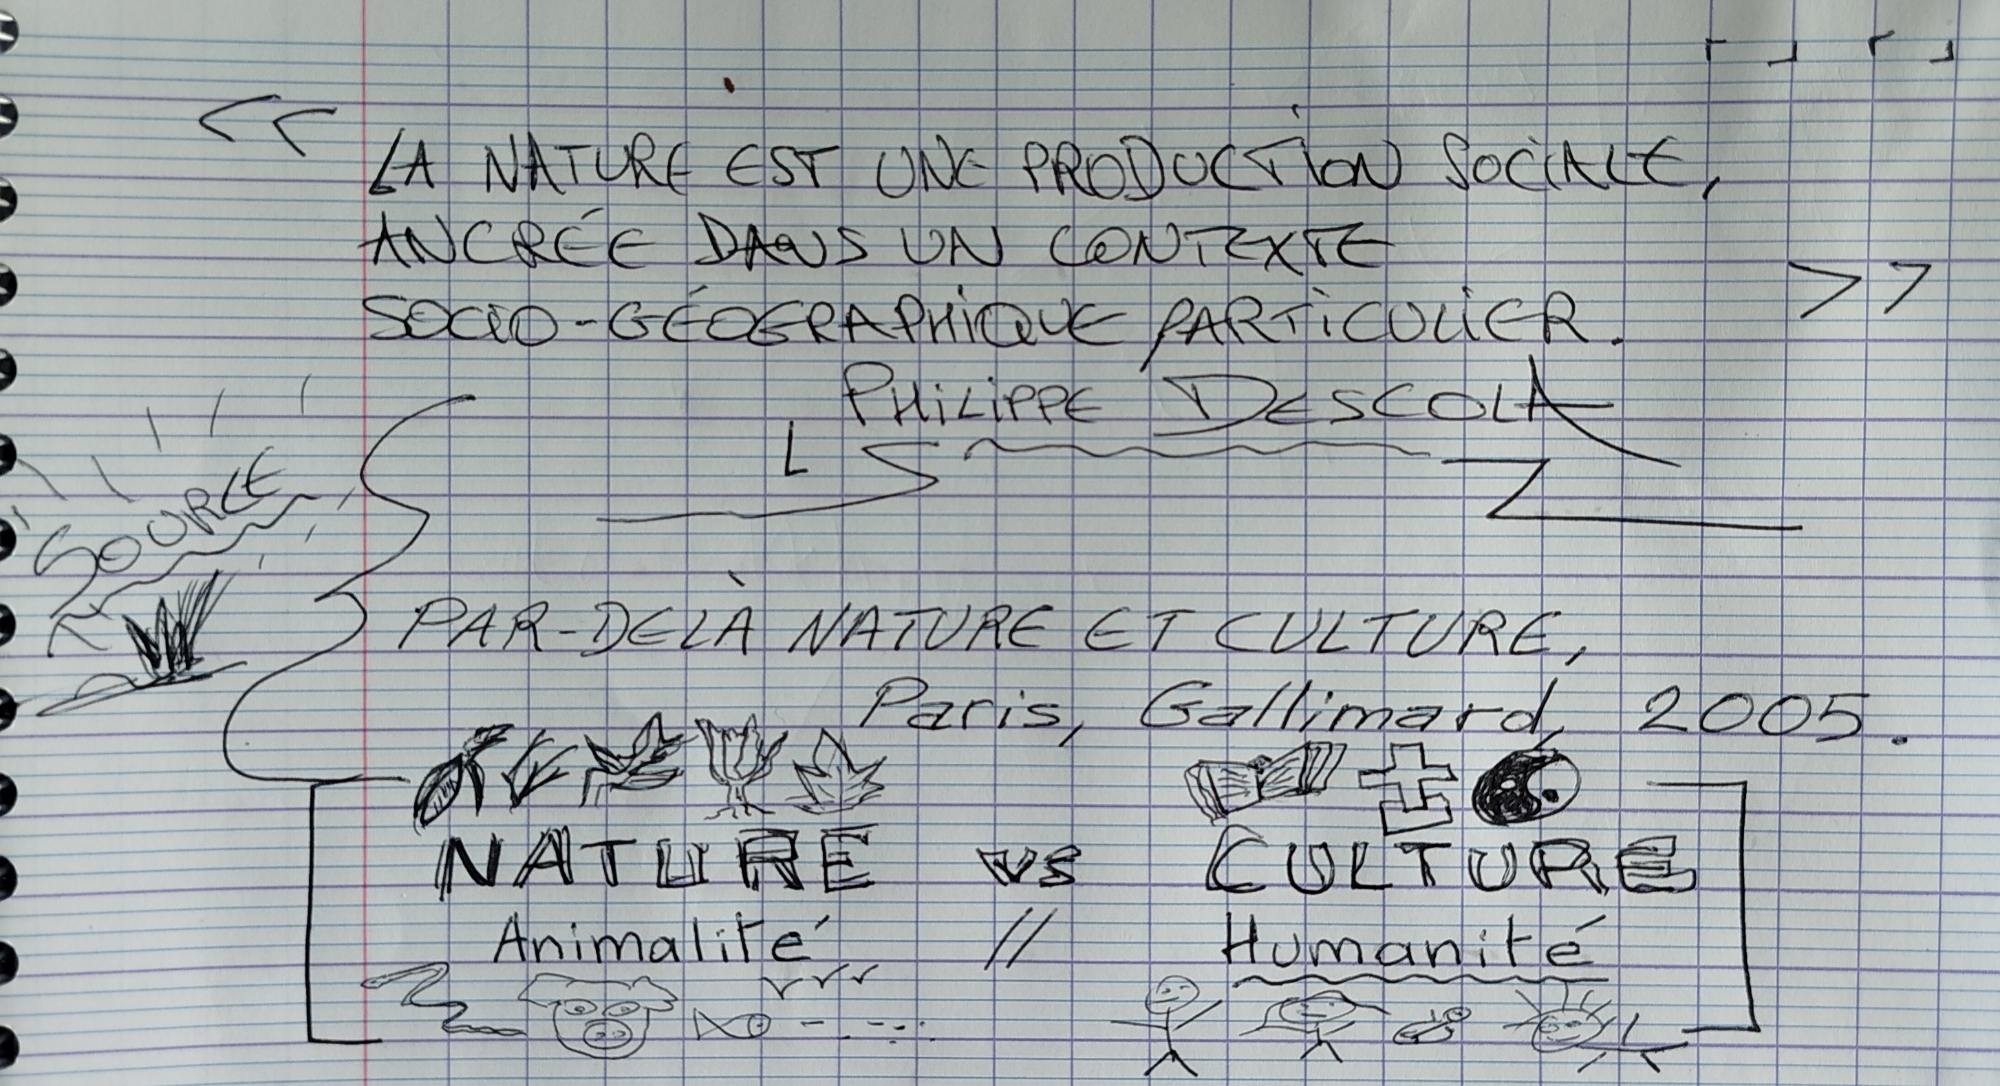 << LA NATURE EST UNE PRODUCTION SOCIALE,
ANCRÉE DANS UN CONTEXTE
SOCIO-GÉOGRAPHIQUE PARTICULIER. >>
PHILIPPE DESCOLA
SOURCE
PAR-DELÀ NATURE ET CULTURE,
Paris, Gallimard, 2005.
NATURE vs CULTURE
Animalité // Humanité